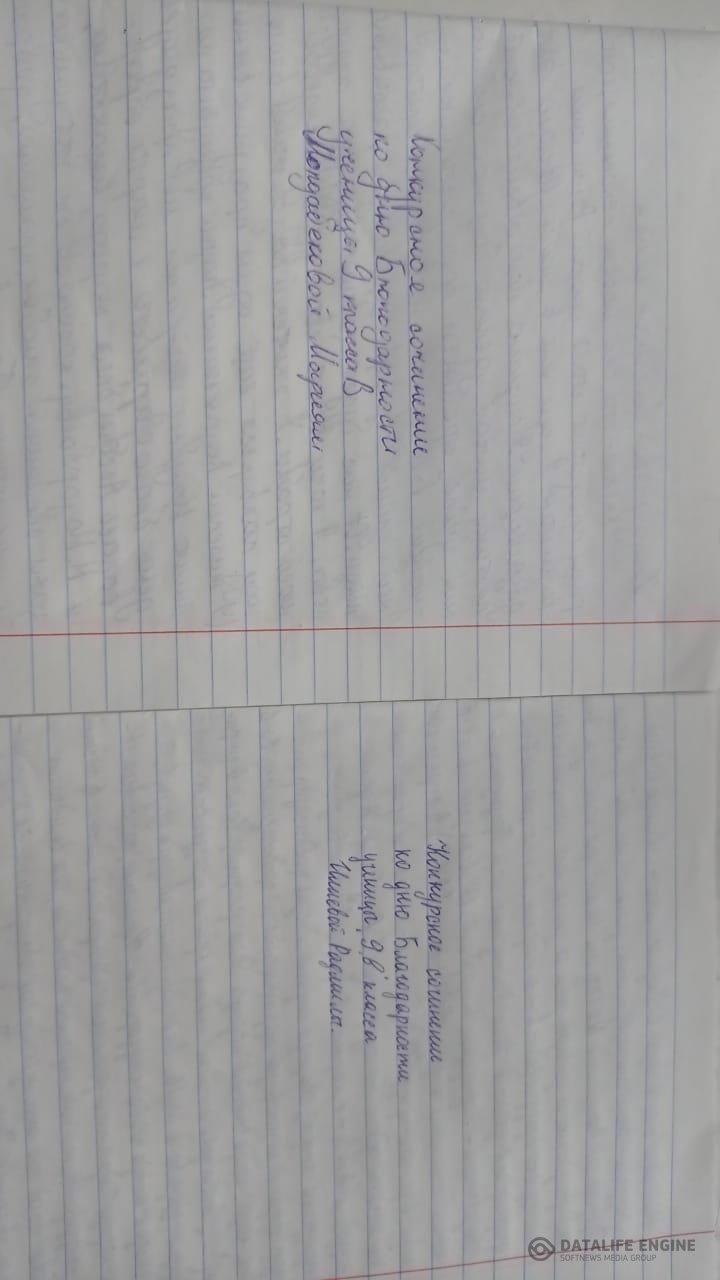 Конкурсное сочинении
ко дню Благодарности
ученицы 9 класса В
Молдабековой Мариям
Конкурсное сочинении
ко дню Благодарности
ученицы 9 "в" класса
DATALIFE ENGINE
SOFTNEWS MEDIA GROUP